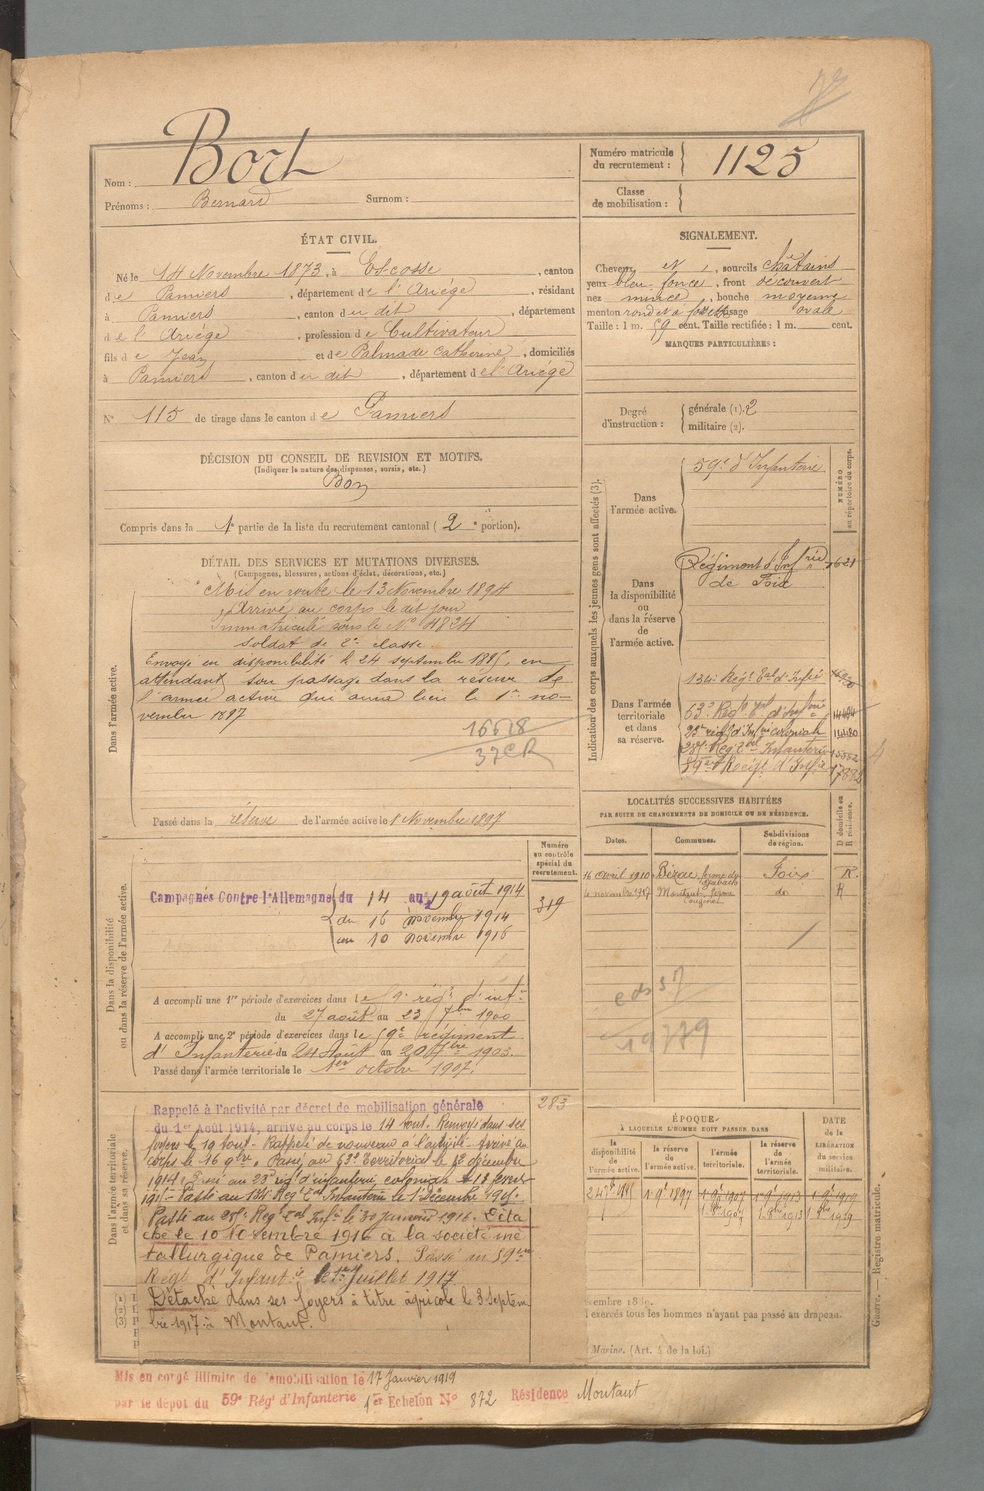 Nom : Bort
Prénoms : Bernard Surnom :
Numéro matricule du recrutement : 1125
Classe de mobilisation :
ÉTAT CIVIL.
Né le 14 Novembre 1873, à Escosse, canton
de Pamiers, département de l'Ariège, résidant
à Pamiers, canton du dit, département
de l'Ariège, profession de Cultivateur
fils de Jean et de Palmade Catherine, domiciliés
à Pamiers, canton du dit, département de l'Ariège
N° 115 de tirage dans le canton de Pamiers
SIGNALEMENT.
Cheveux et, sourcils châtains
yeux bleu foncé, front découvert
nez mince, bouche moyenne
menton rond et à fossette visage ovale
Taille : 1 m. 59 cent. Taille rectifiée : 1 m. cent.
MARQUES PARTICULIÈRES :
Degré d'instruction : générale (1). 2
militaire (2).
DÉCISION DU CONSEIL DE REVISION ET MOTIFS.
(Indiquer la nature des dispenses, sursis, etc.)
Bon
Compris dans la 1e partie de la liste du recrutement cantonal (2e portion).
DÉTAIL DES SERVICES ET MUTATIONS DIVERSES.
(Campagnes, blessures, actions d'éclat, décorations, etc.)
Dans l'armée active.
Mis en route le 13 Novembre 1894
Arrivé au corps le dit jour
Immatriculé sous le N° 4824
Soldat de 2e classe
Envoyé en disponibilité le 24 septembre 1895, en
attendant son passage dans la réserve de
l'armée active qui aura lieu le 1er no-
vembre 1897
16678
37 CR
Passé dans la réserve de l'armée active le 1 Novembre 1897
Indication des corps auxquels les jeunes gens sont affectés (3).
NUMÉRO au répertoire du corps.
Dans l'armée active.
59e d'Infanterie
Dans la disponibilité ou dans la réserve de l'armée active.
Régiment d'Infrie 1621
de Foix
Dans l'armée territoriale et dans sa réserve.
134e Regt Eal d'Infie
63e Regt d'Infie
23e régt d'Infie coloniale 14480
Infanterie
59e Regt d'Infie
LOCALITÉS SUCCESSIVES HABITÉES
PAR SUITE DE CHANGEMENTS DE DOMICILE OU DE RÉSIDENCE.
Dates. Communes. Subdivisions de région. D domicile ou R résidence.
16 avril 1910 Bézac Foix R.
Montaut do R
19779
Dans la disponibilité ou dans la réserve de l'armée active.
Numéro au contrôle spécial du recrutement.
319
Campagnes Contre l'Allemagne du 14 au 19 août 1914
du 16 novembre 1914
au 10 novembre 1916
A accompli une 1re période d'exercices dans le 9e régt d'infie
du 27 août au 23 7bre 1900
A accompli une 2e période d'exercices dans le 59e régiment
d'Infanterie du 24 août au 20 7bre 1903.
Passé dans l'armée territoriale le 1er octobre 1907.
Dans l'armée territoriale et dans sa réserve.
283
Rappelé à l'activité par décret de mobilisation générale
du 1er Août 1914, arrivé au corps le 14 aout. Renvoyé dans ses
foyers le 19 aout. Rappelé de nouveau à l'activité. Arrivé au
corps le 16 9bre. Passé au 63e territorial le 12 décembre
1914. Passé au 23e régt d'infanterie coloniale
1915. Passé au 134e Regt Eal Infanterie le 1 Décembre 1915.
Passé au Regt Eal Infie le 30 janvier 1916. Déta
ché le 10 Novembre 1916 à la société mé
tallurgique de Pamiers. Passé au 59me
Régt d'Infantie le 1er Juillet 1917
Détaché dans ses foyers à titre agricole le 3 Septem
bre 1917 à Montaut.
ÉPOQUE
À LAQUELLE L'HOMME DOIT PASSER DANS
la disponibilité de l'armée active. la réserve de l'armée active. l'armée territoriale. la réserve de l'armée territoriale.
DATE de la LIBÉRATION du service militaire.
24 7bre 1895 1 9e 1897 1 9e 1907 1 9e 1913 1 9e 1919
1 8bre 1907 1 8bre 1913 1 8bre 1919
exercés tous les hommes n'ayant pas passé au drapeau.
Marine. (Art. 4 de la loi.)
Guerre. — Registre matricule.
Mis en congé illimité de démobilisation le 17 Janvier 1919
par le dépot du 59e Régt d'Infanterie 1er Echelon N° 872 Résidence Montaut